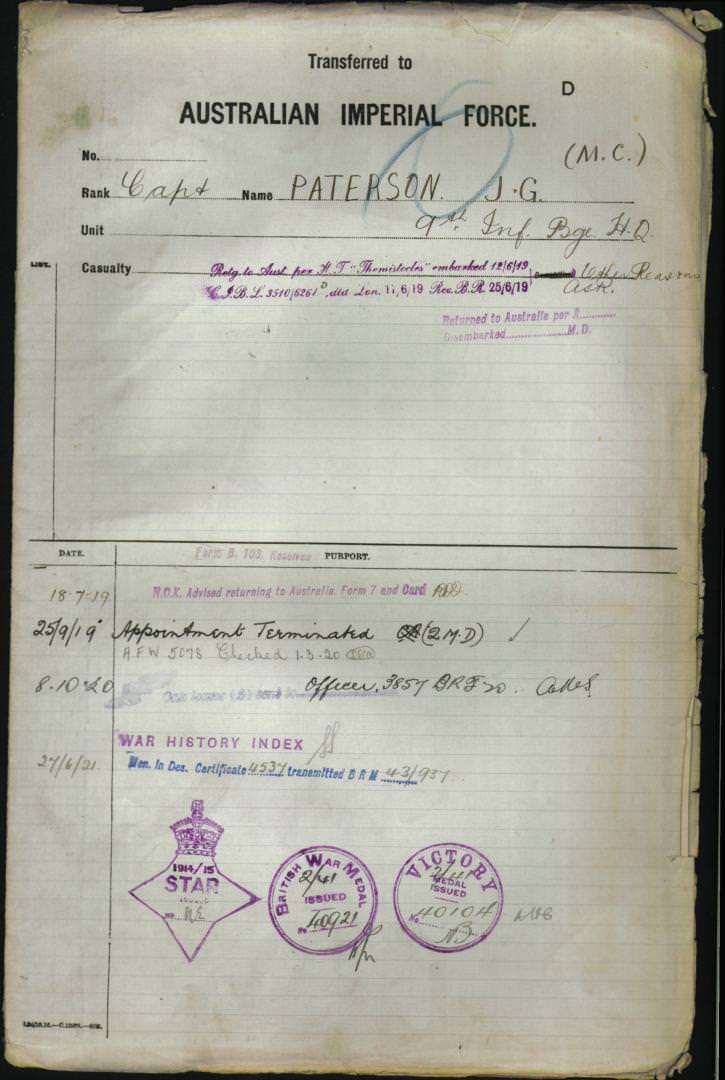 Transferred to
D
AUSTRALIAN IMPERIAL FORCE.
No.
(M.C.)
Rank Capt Name PATERSON. J.G.
Unit 9th. Inf. Bge. H.Q.
LIST.
Casualty Retg. to Aust. per H.T "Themistocles" embarked 12/6/19 Other Reasons
C.I.B.L. 3510/6261 D, dtd Lon. 17/6/19 Rec. B.R. 25/6/19
Returned to Australia per
Disembarked M.D.
DATE. Form B. 103. Received PURPORT.
18-7-19 N.O.K. Advised returning to Australia. Form 7 and Card
25/9/19 Appointment Terminated (2 M.D)
A.F.W 5078 Checked 1.3.20
8.10.20 Officer. 3857
WAR HISTORY INDEX
27/6/21 Men. in Des. Certificate 4537 transmitted B R M 43/937
1914/15
STAR
ISSUED
No
BRITISH WAR MEDAL
2/41
ISSUED
No 40921
VICTORY
2/41
MEDAL
ISSUED
No. 40104